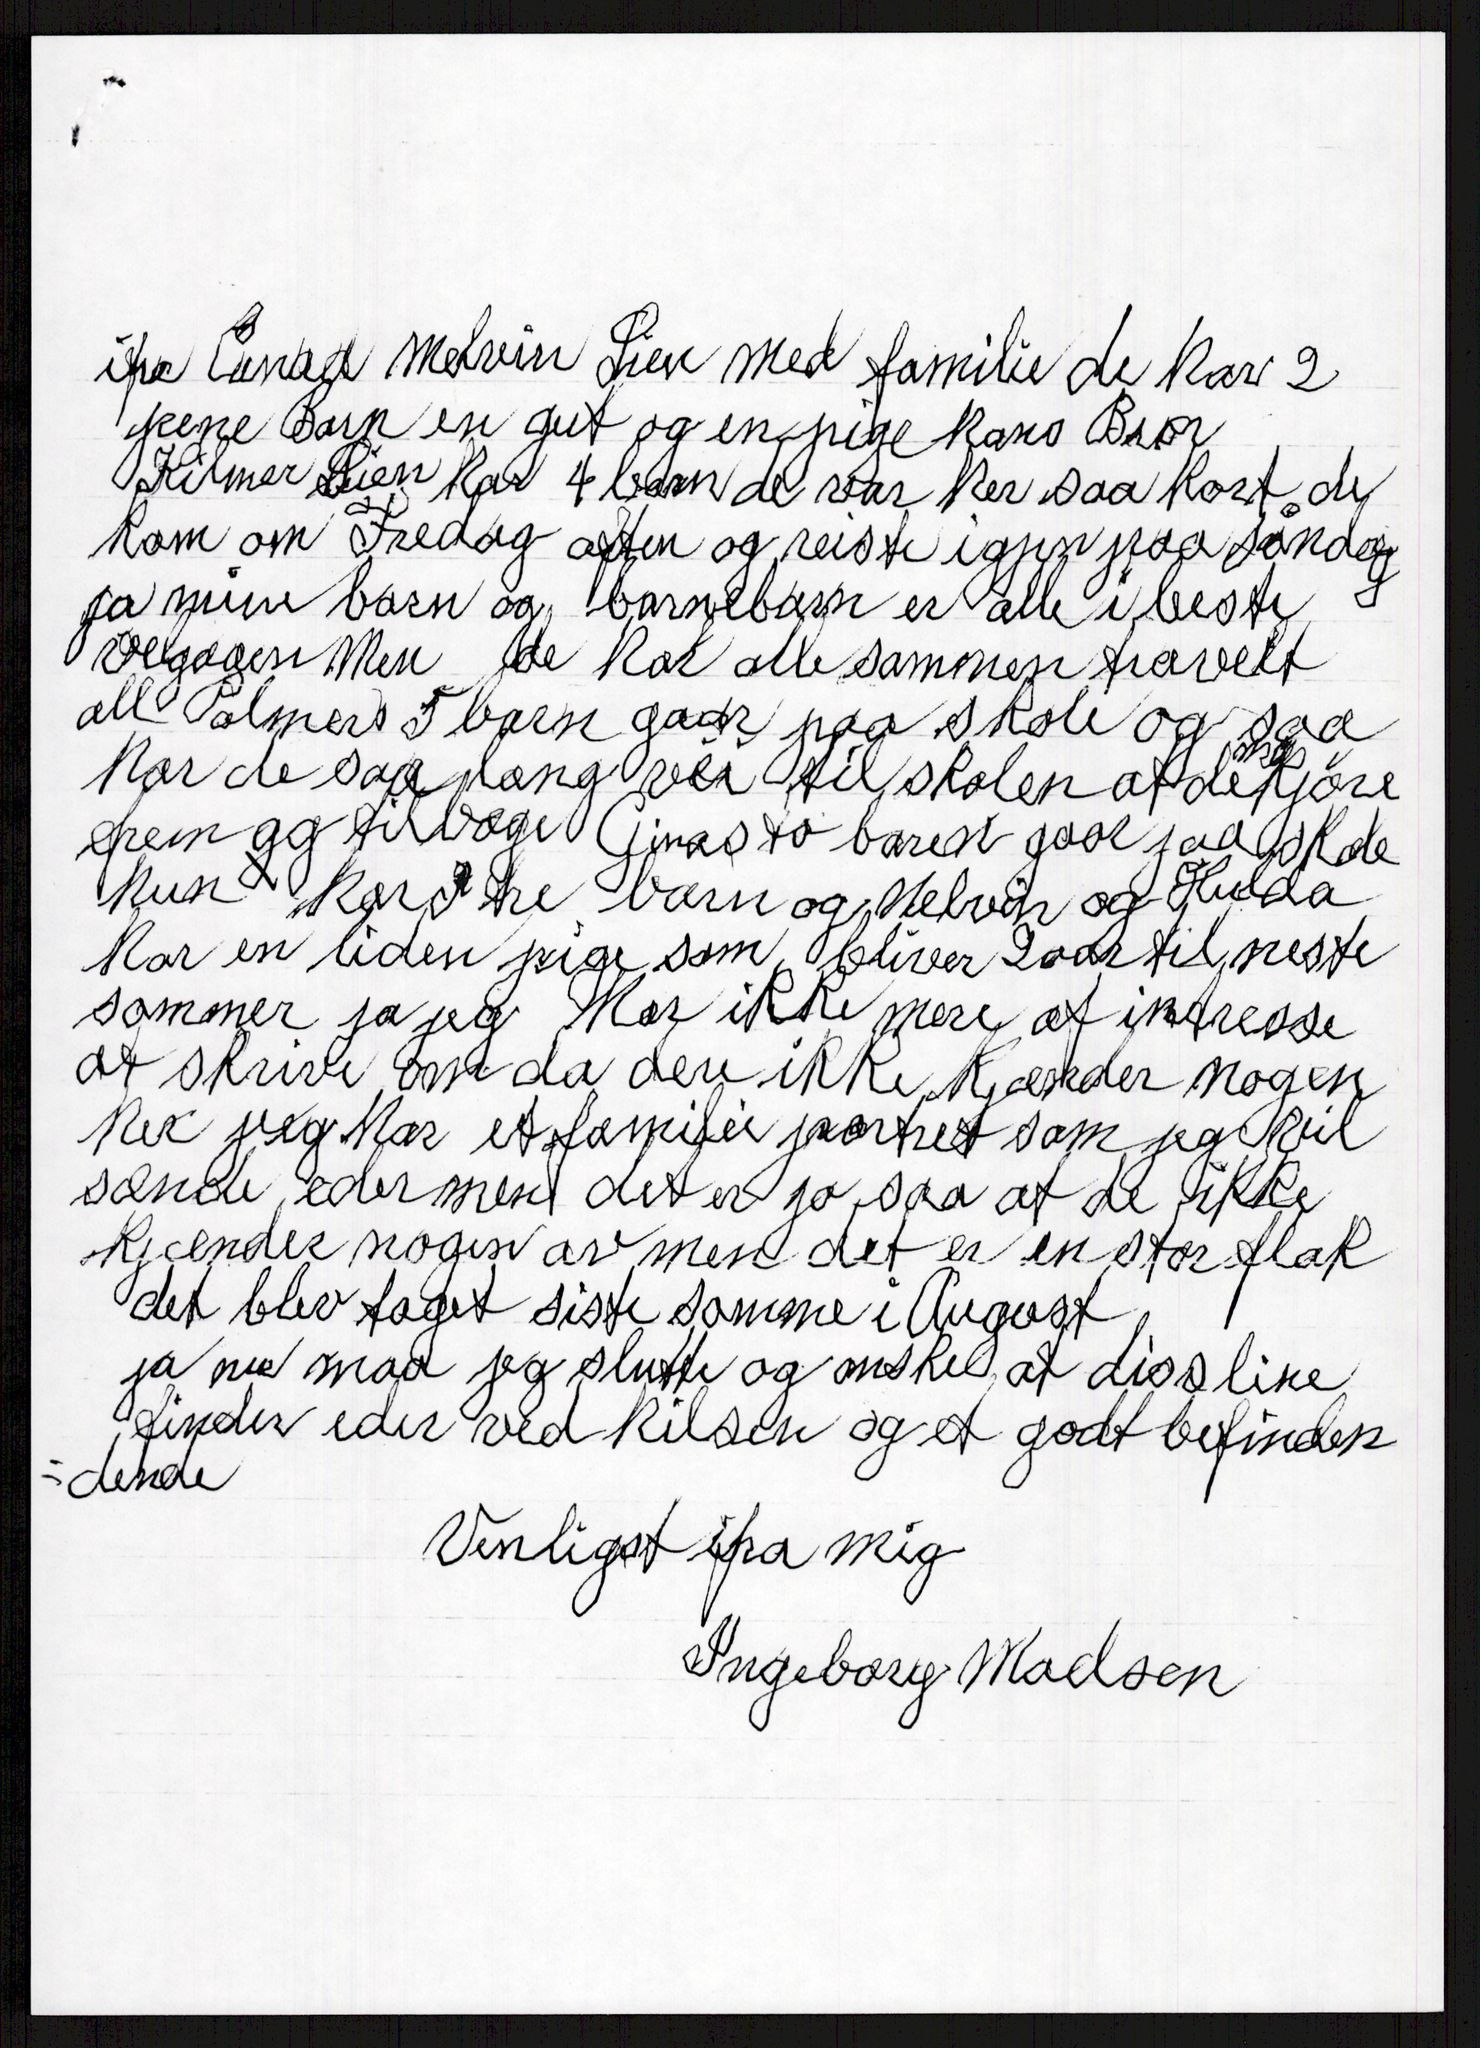 ifra Canada Melvin Lien med familie de har 2
pene Barn en gut og en pige hans Bror
Hilmer Lien har 4 barn de var her saa kort de
kom om Fredag aften og reiste igjen paa söndag
ja mine barn og barnebarn er alle i beste
velgaaen Men de har alle sammen travelt
all Palmers 5 barn gaar paa skole og saa
har de saa lang vei til skolen at de maa kjöre
frem og tilbage Ginas to barn gaar paa skole
hun har tre barn og Melvin og Hulda
har en liden pige som bliver 2 aar til neste
sommer ja jeg har ikke mere af intresse
at skrive om da dere ikke kjænder nogen
her jeg har et familie portret som jeg vil
sænde eder men det er jo saa at de ikke
kjænder nogen av men det er en stor flok
det blev taget siste somme i August
ja nu maa jeg slutte og ønske at diss line
finder eder ved hilsen og et godt befinden
=dende
Venligst ifra mig
Ingeborg Madsen